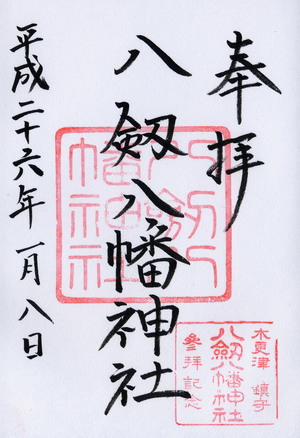 奉拝
八剱八幡神社
平成二十六年一月八日
八剱八幡神社
木更津 鎮守
八剱八幡神社
参拝記念